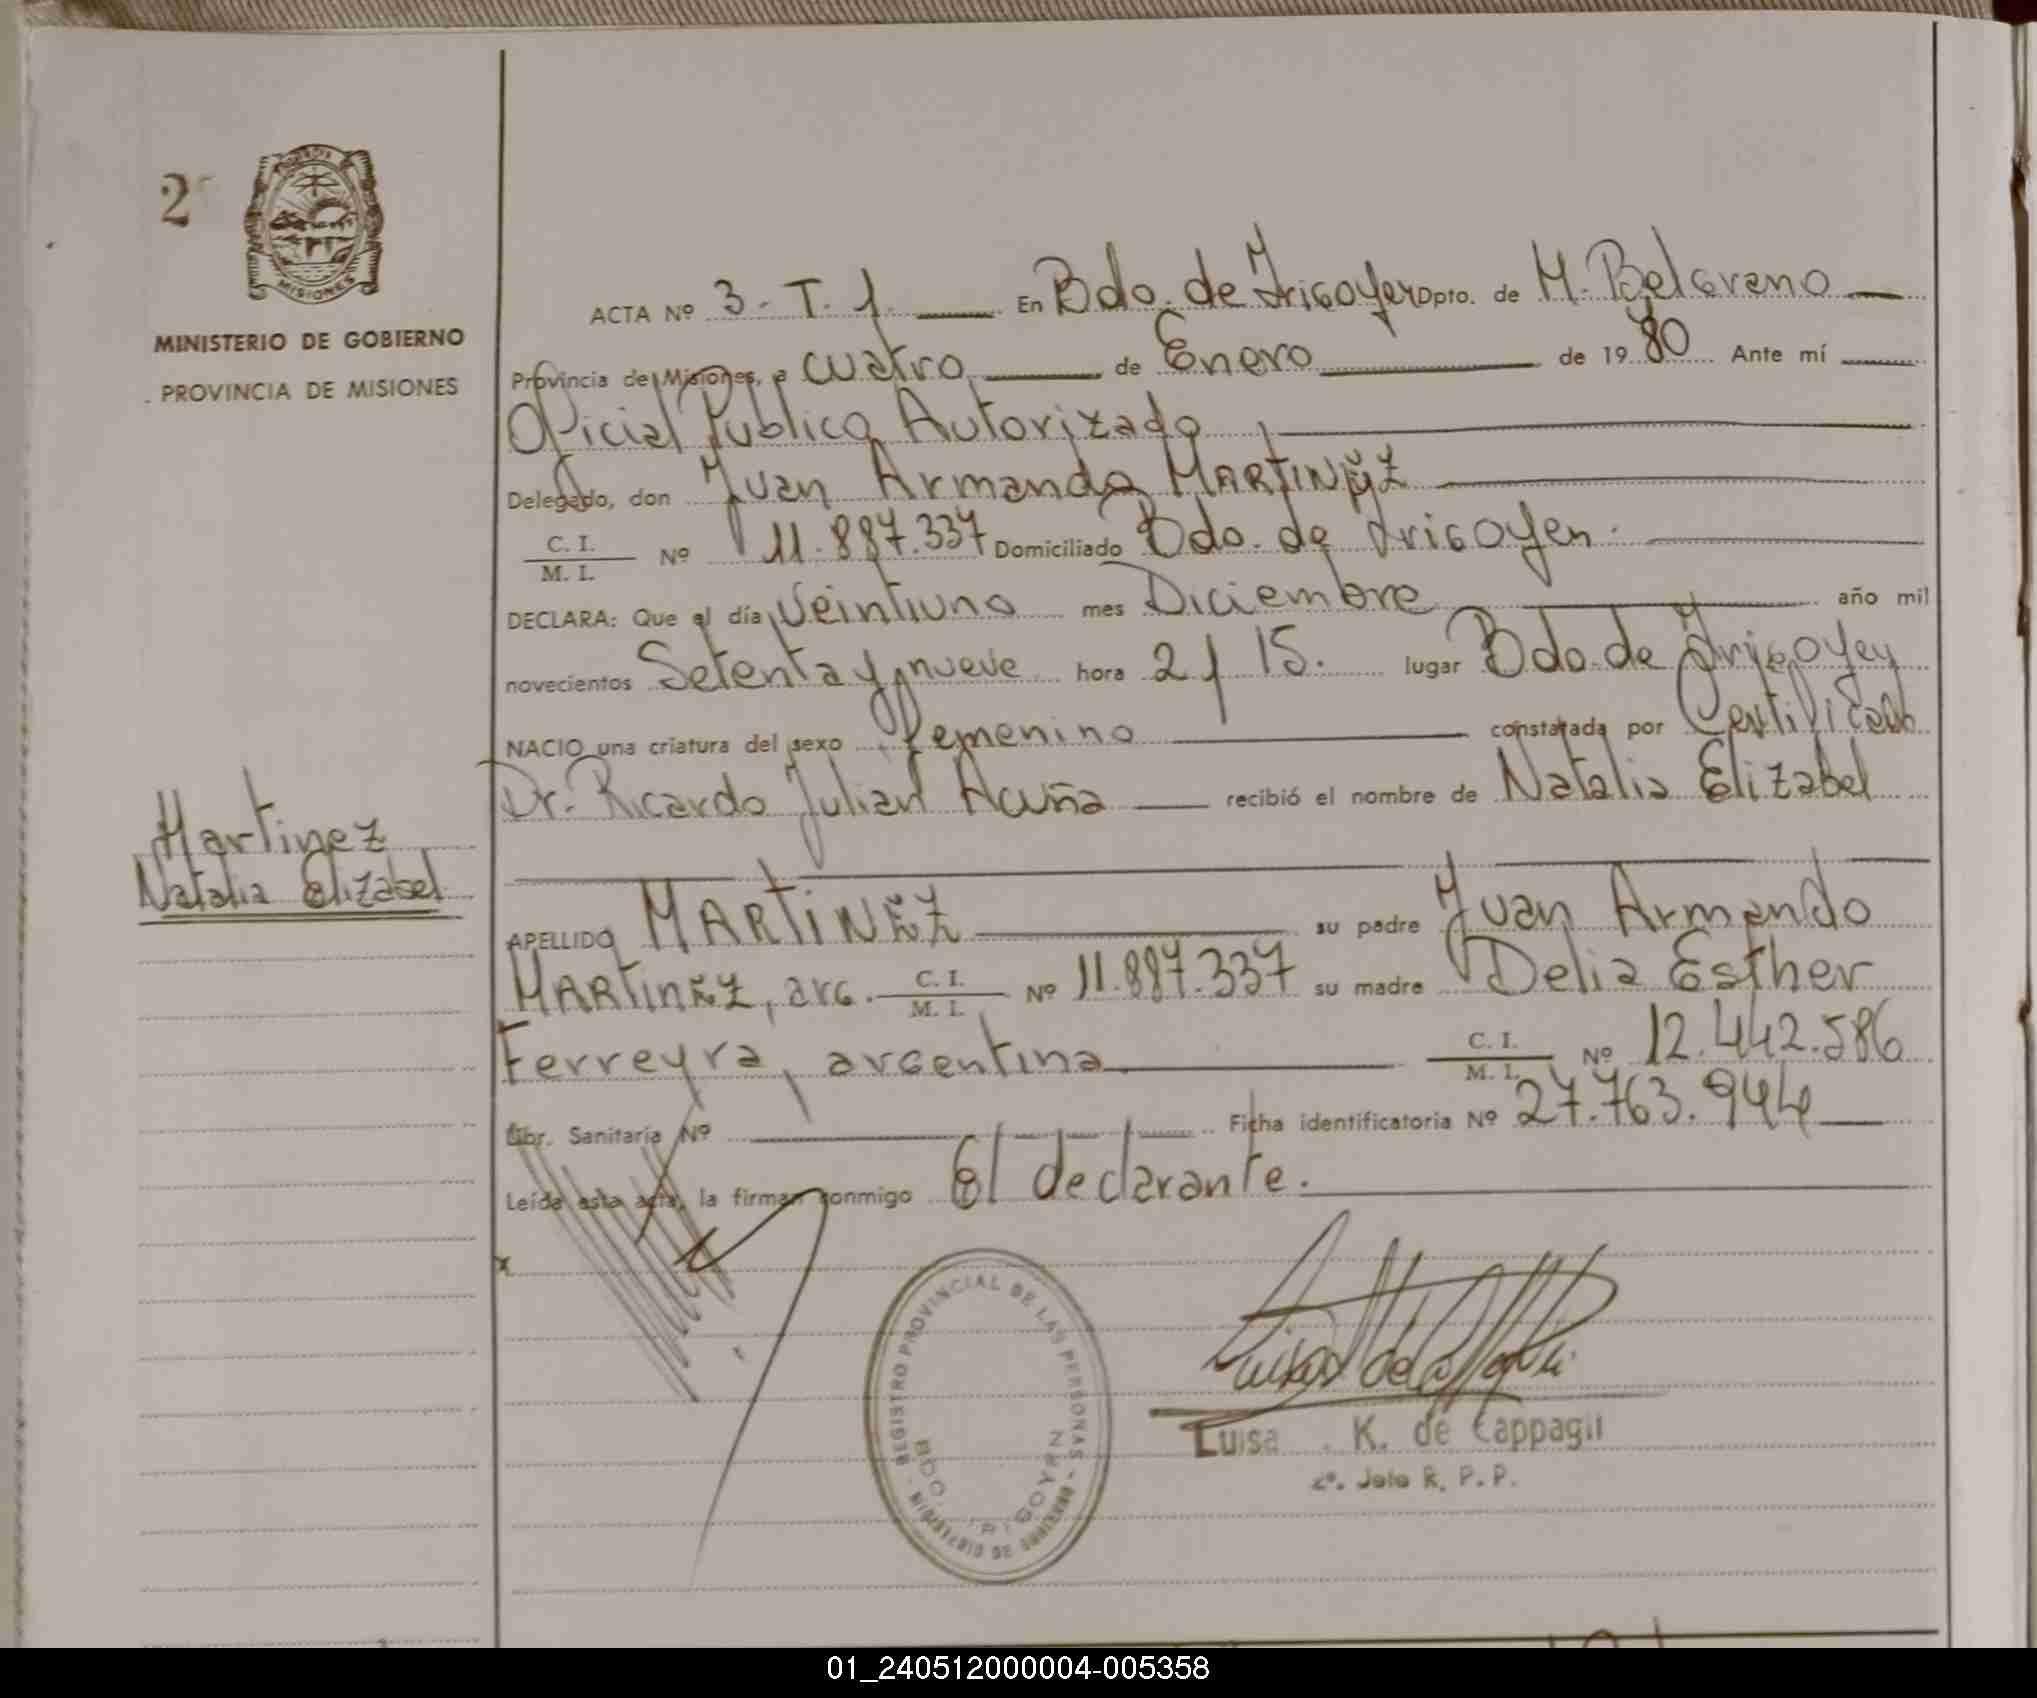 2
MISIONES
MINISTERIO DE GOBIERNO
PROVINCIA DE MISIONES
ACTA Nº 3 - T. 1. En Bdo. de Irigoyen Dpto. de M. Belgrano
Provincia de Misiones, a cuatro de Enero de 1980 Ante mí
Oficial Público Autorizado
Delegado, don Juan Armando MARTINEZ
C. I.
M. I. Nº 11.887.337 Domiciliado Bdo. de Irigoyen.
DECLARA: Que el día Veintiuno mes Diciembre año mil
novecientos Setenta y nueve hora 21 15. lugar Bdo. de Irigoyen
NACIO una criatura del sexo femenino constatada por Certificado
Dr. Ricardo Julian Acuña recibió el nombre de Natalia Elizabel
Martinez
Natalia Elizabel
APELLIDO MARTINEZ su padre Juan Armando
MARTINEZ, arg. C. I. M. I. Nº 11.887.337 su madre Delia Esther
Ferreyra, argentina C. I. M. I. Nº 12.442.586
Libr. Sanitaria Nº Ficha identificatoria Nº 27.763.944
Leída esta acta, la firman conmigo El declarante.
x
REGISTRO PROVINCIAL DE LAS PERSONAS - MINISTERIO DE GOBIERNO -
BDO. IRIGOYEN
Luisa K. de Cappagli
2º. Jefe R. P. P.
01_240512000004-005358